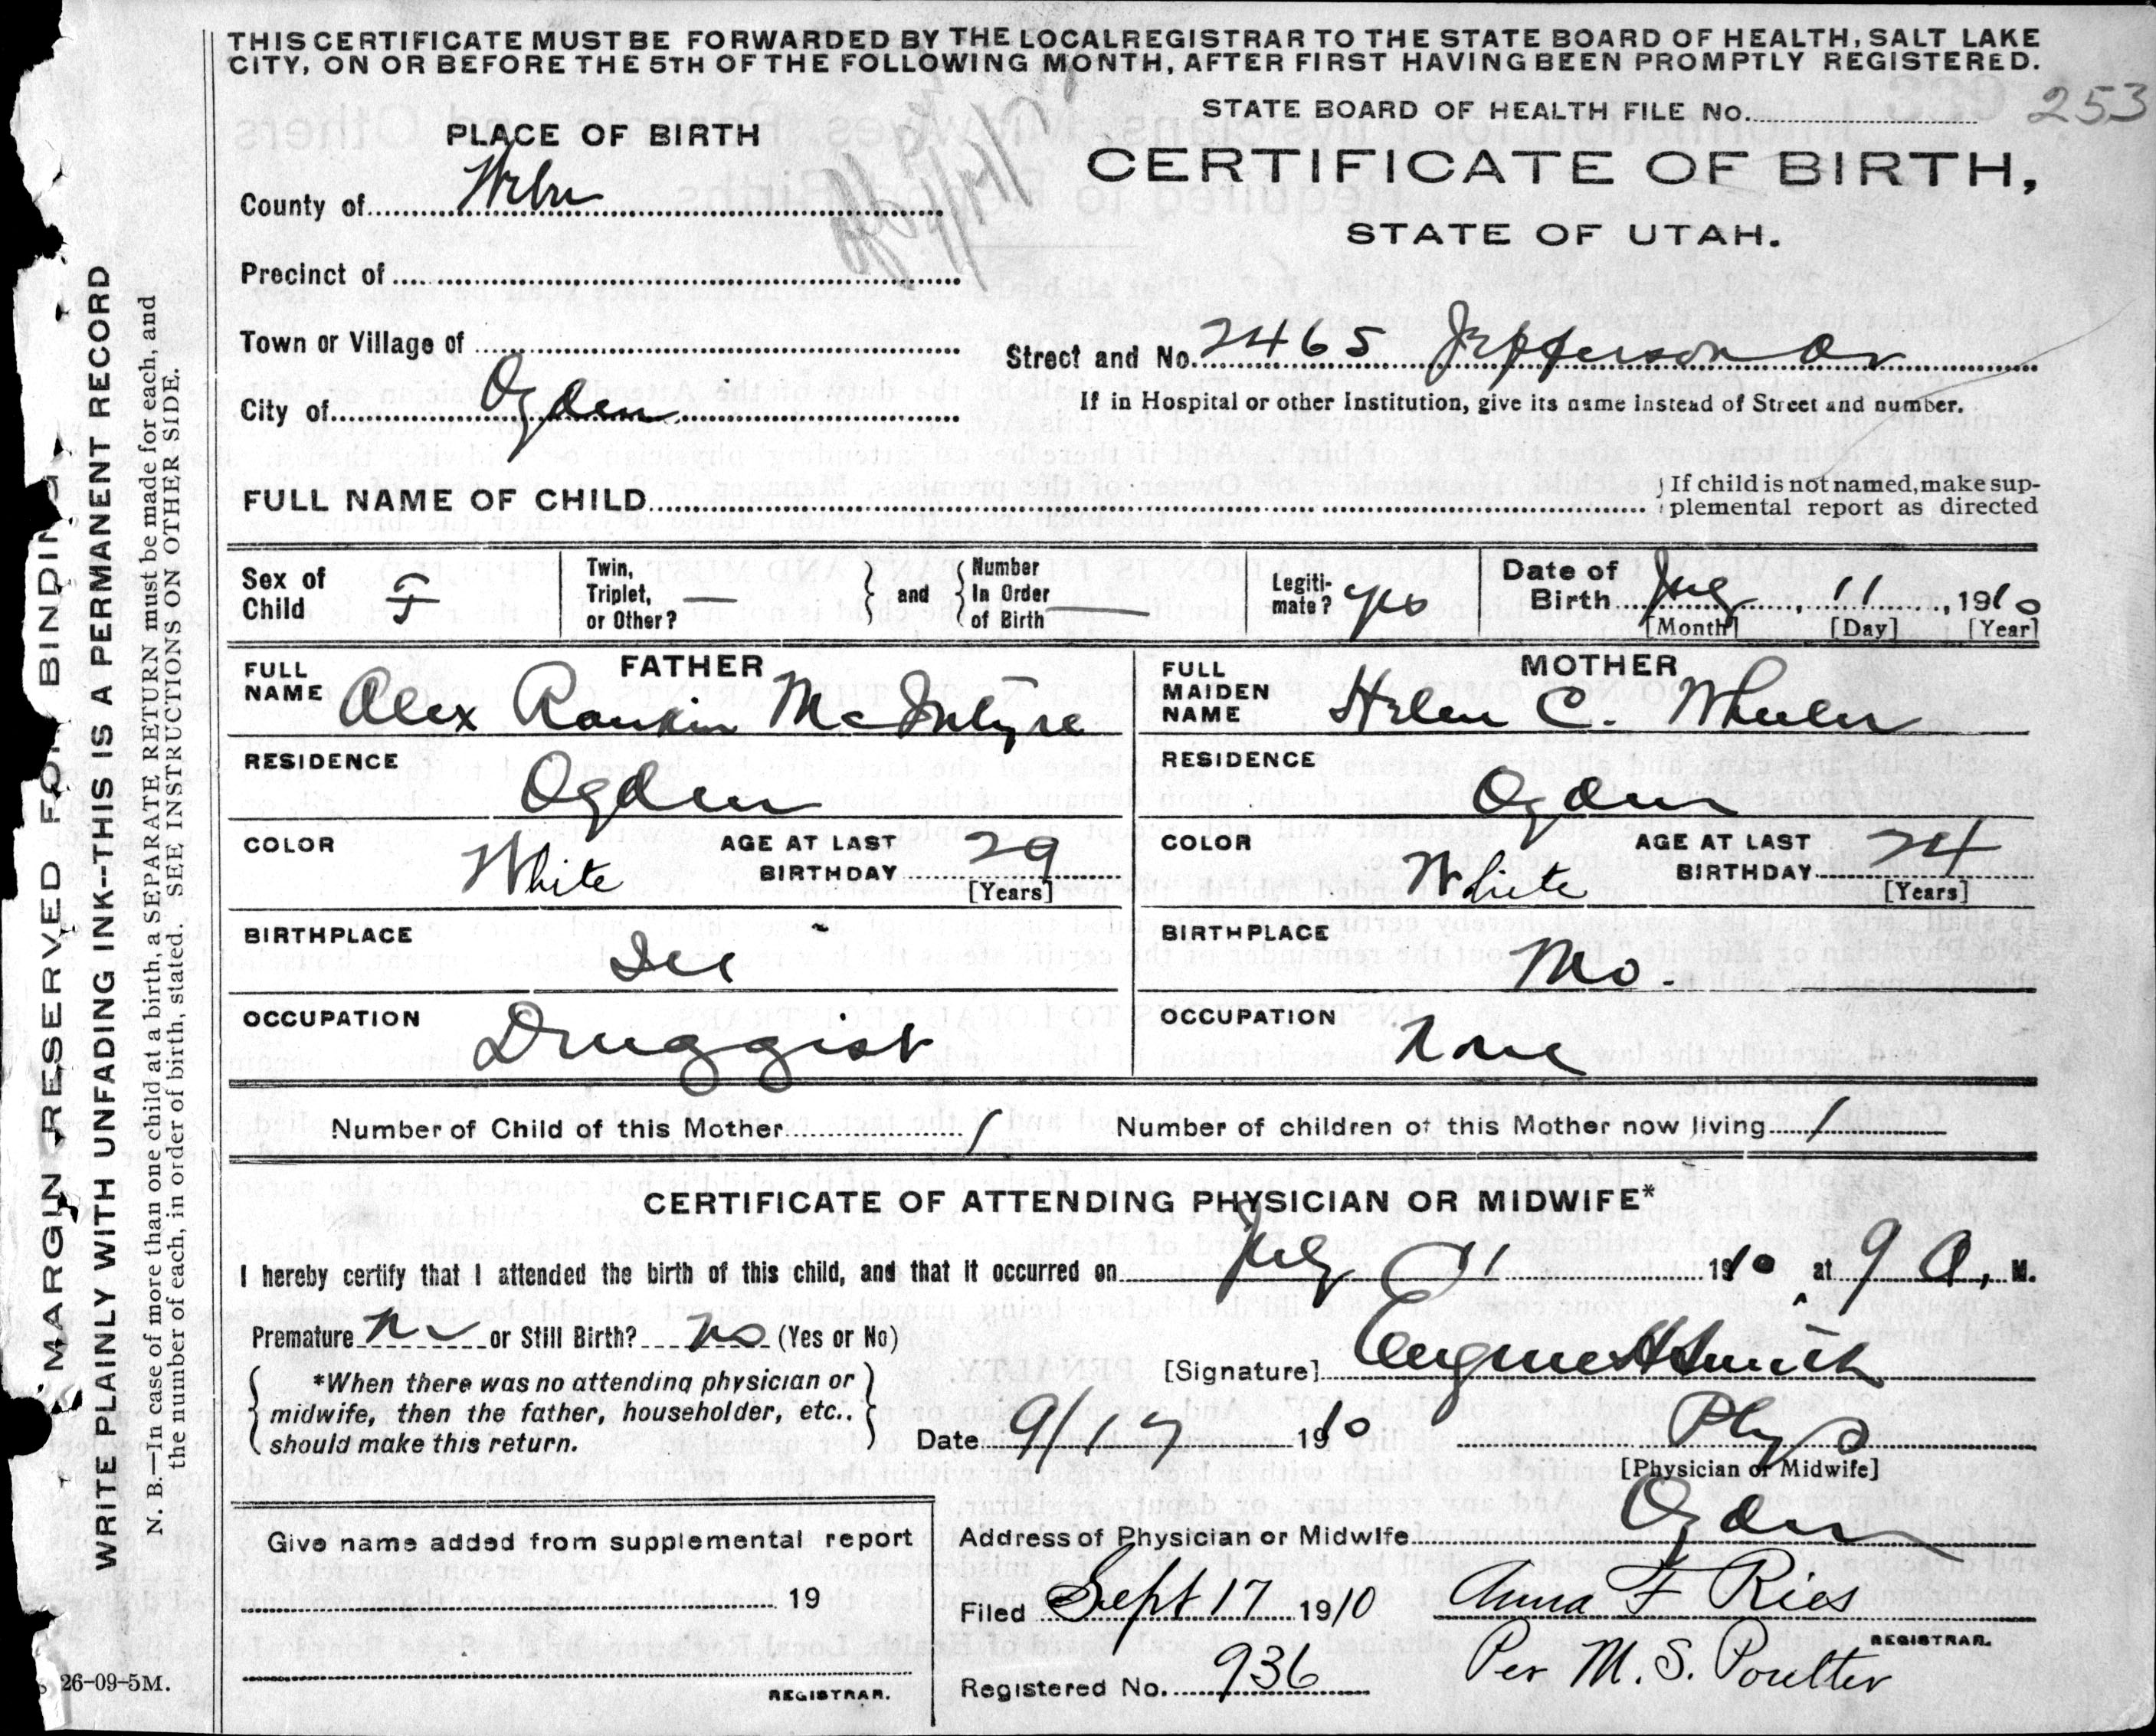 THIS CERTIFICATE MUST BE FORWARDED BY THE LOCAL REGISTRAR TO THE STATE BOARD OF HEALTH, SALT LAKE
CITY, ON OR BEFORE THE 5TH OF THE FOLLOWING MONTH, AFTER FIRST HAVING BEEN PROMPTLY REGISTERED.
STATE BOARD OF HEALTH FILE No. 253
PLACE OF BIRTH
CERTIFICATE OF BIRTH,
STATE OF UTAH.
County of Weber
Precinct of
Town or Village of
Street and No. 2465 Jefferson Av
City of Ogden
If in Hospital or other Institution, give its name instead of Street and number.
FULL NAME OF CHILD
If child is not named, make sup-
plemental report as directed
Sex of Child F
Twin, Triplet, or Other? —
and
Number In Order of Birth —
Legiti-mate? yes
Date of Birth 11, 1910
[Month] [Day] [Year]
FATHER
FULL NAME Alex Rankin McIntyre
RESIDENCE Ogden
COLOR White
AGE AT LAST BIRTHDAY 29
[Years]
BIRTHPLACE
OCCUPATION Druggist
MOTHER
FULL MAIDEN NAME Helen C. Wheeler
RESIDENCE Ogden
COLOR White
AGE AT LAST BIRTHDAY 24
[Years]
BIRTHPLACE Mo.
OCCUPATION None
Number of Child of this Mother 1
Number of children of this Mother now living 1
CERTIFICATE OF ATTENDING PHYSICIAN OR MIDWIFE*
I hereby certify that I attended the birth of this child, and that it occurred on 11 1910 at 9 A, M.
Premature no or Still Birth? no (Yes or No)
[Signature] Eugene H Smith
*When there was no attending physician or
midwife, then the father, householder, etc.,
should make this return.
Date 9/17 1910
Phys
[Physician or Midwife]
Address of Physician or Midwife Ogden
Give name added from supplemental report
19
REGISTRAR.
Filed Sept 17 1910 Anna F Ries
REGISTRAR.
Per M. S. Poulter
Registered No. 936
MARGIN RESERVED FOR BINDING
WRITE PLAINLY WITH UNFADING INK--THIS IS A PERMANENT RECORD
N. B.—In case of more than one child at a birth, a SEPARATE RETURN must be made for each, and
the number of each, in order of birth, stated. SEE INSTRUCTIONS ON OTHER SIDE.
26-09-5M.